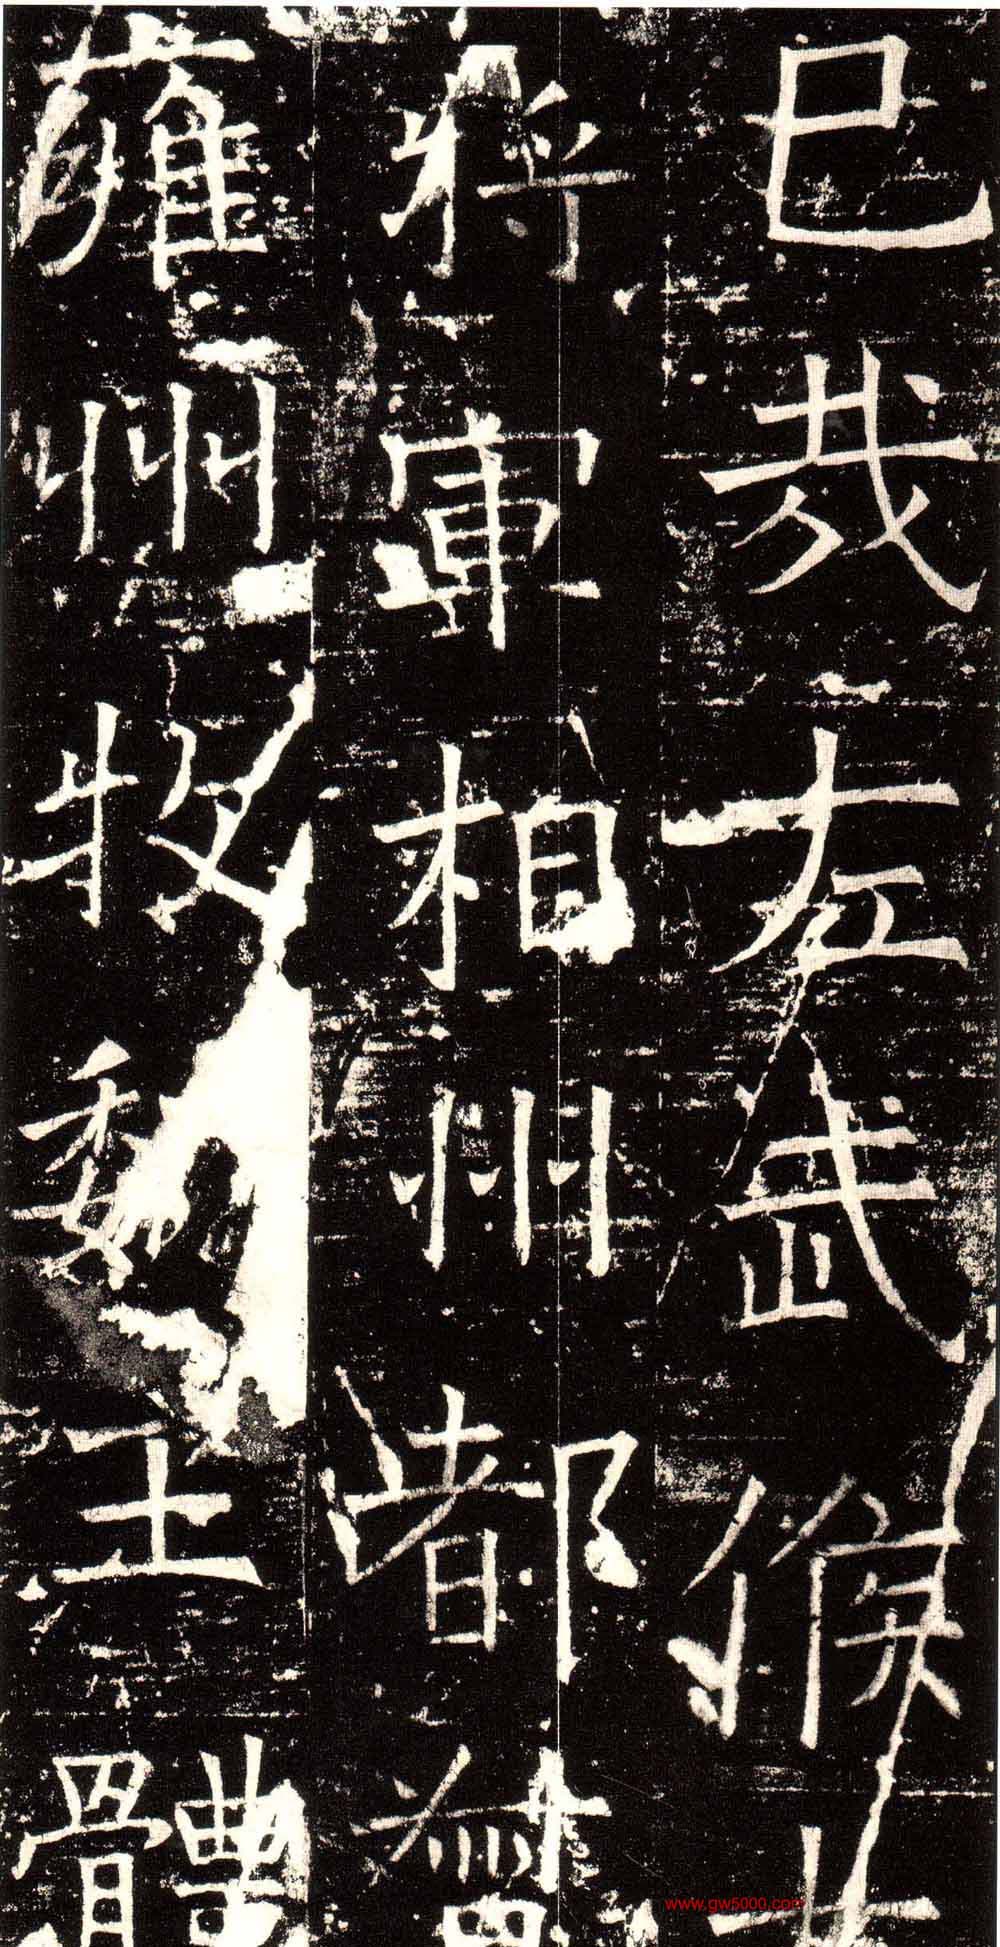 巳哉左武候大
將軍相州都督
雍州牧魏王體
www.gw5000.com